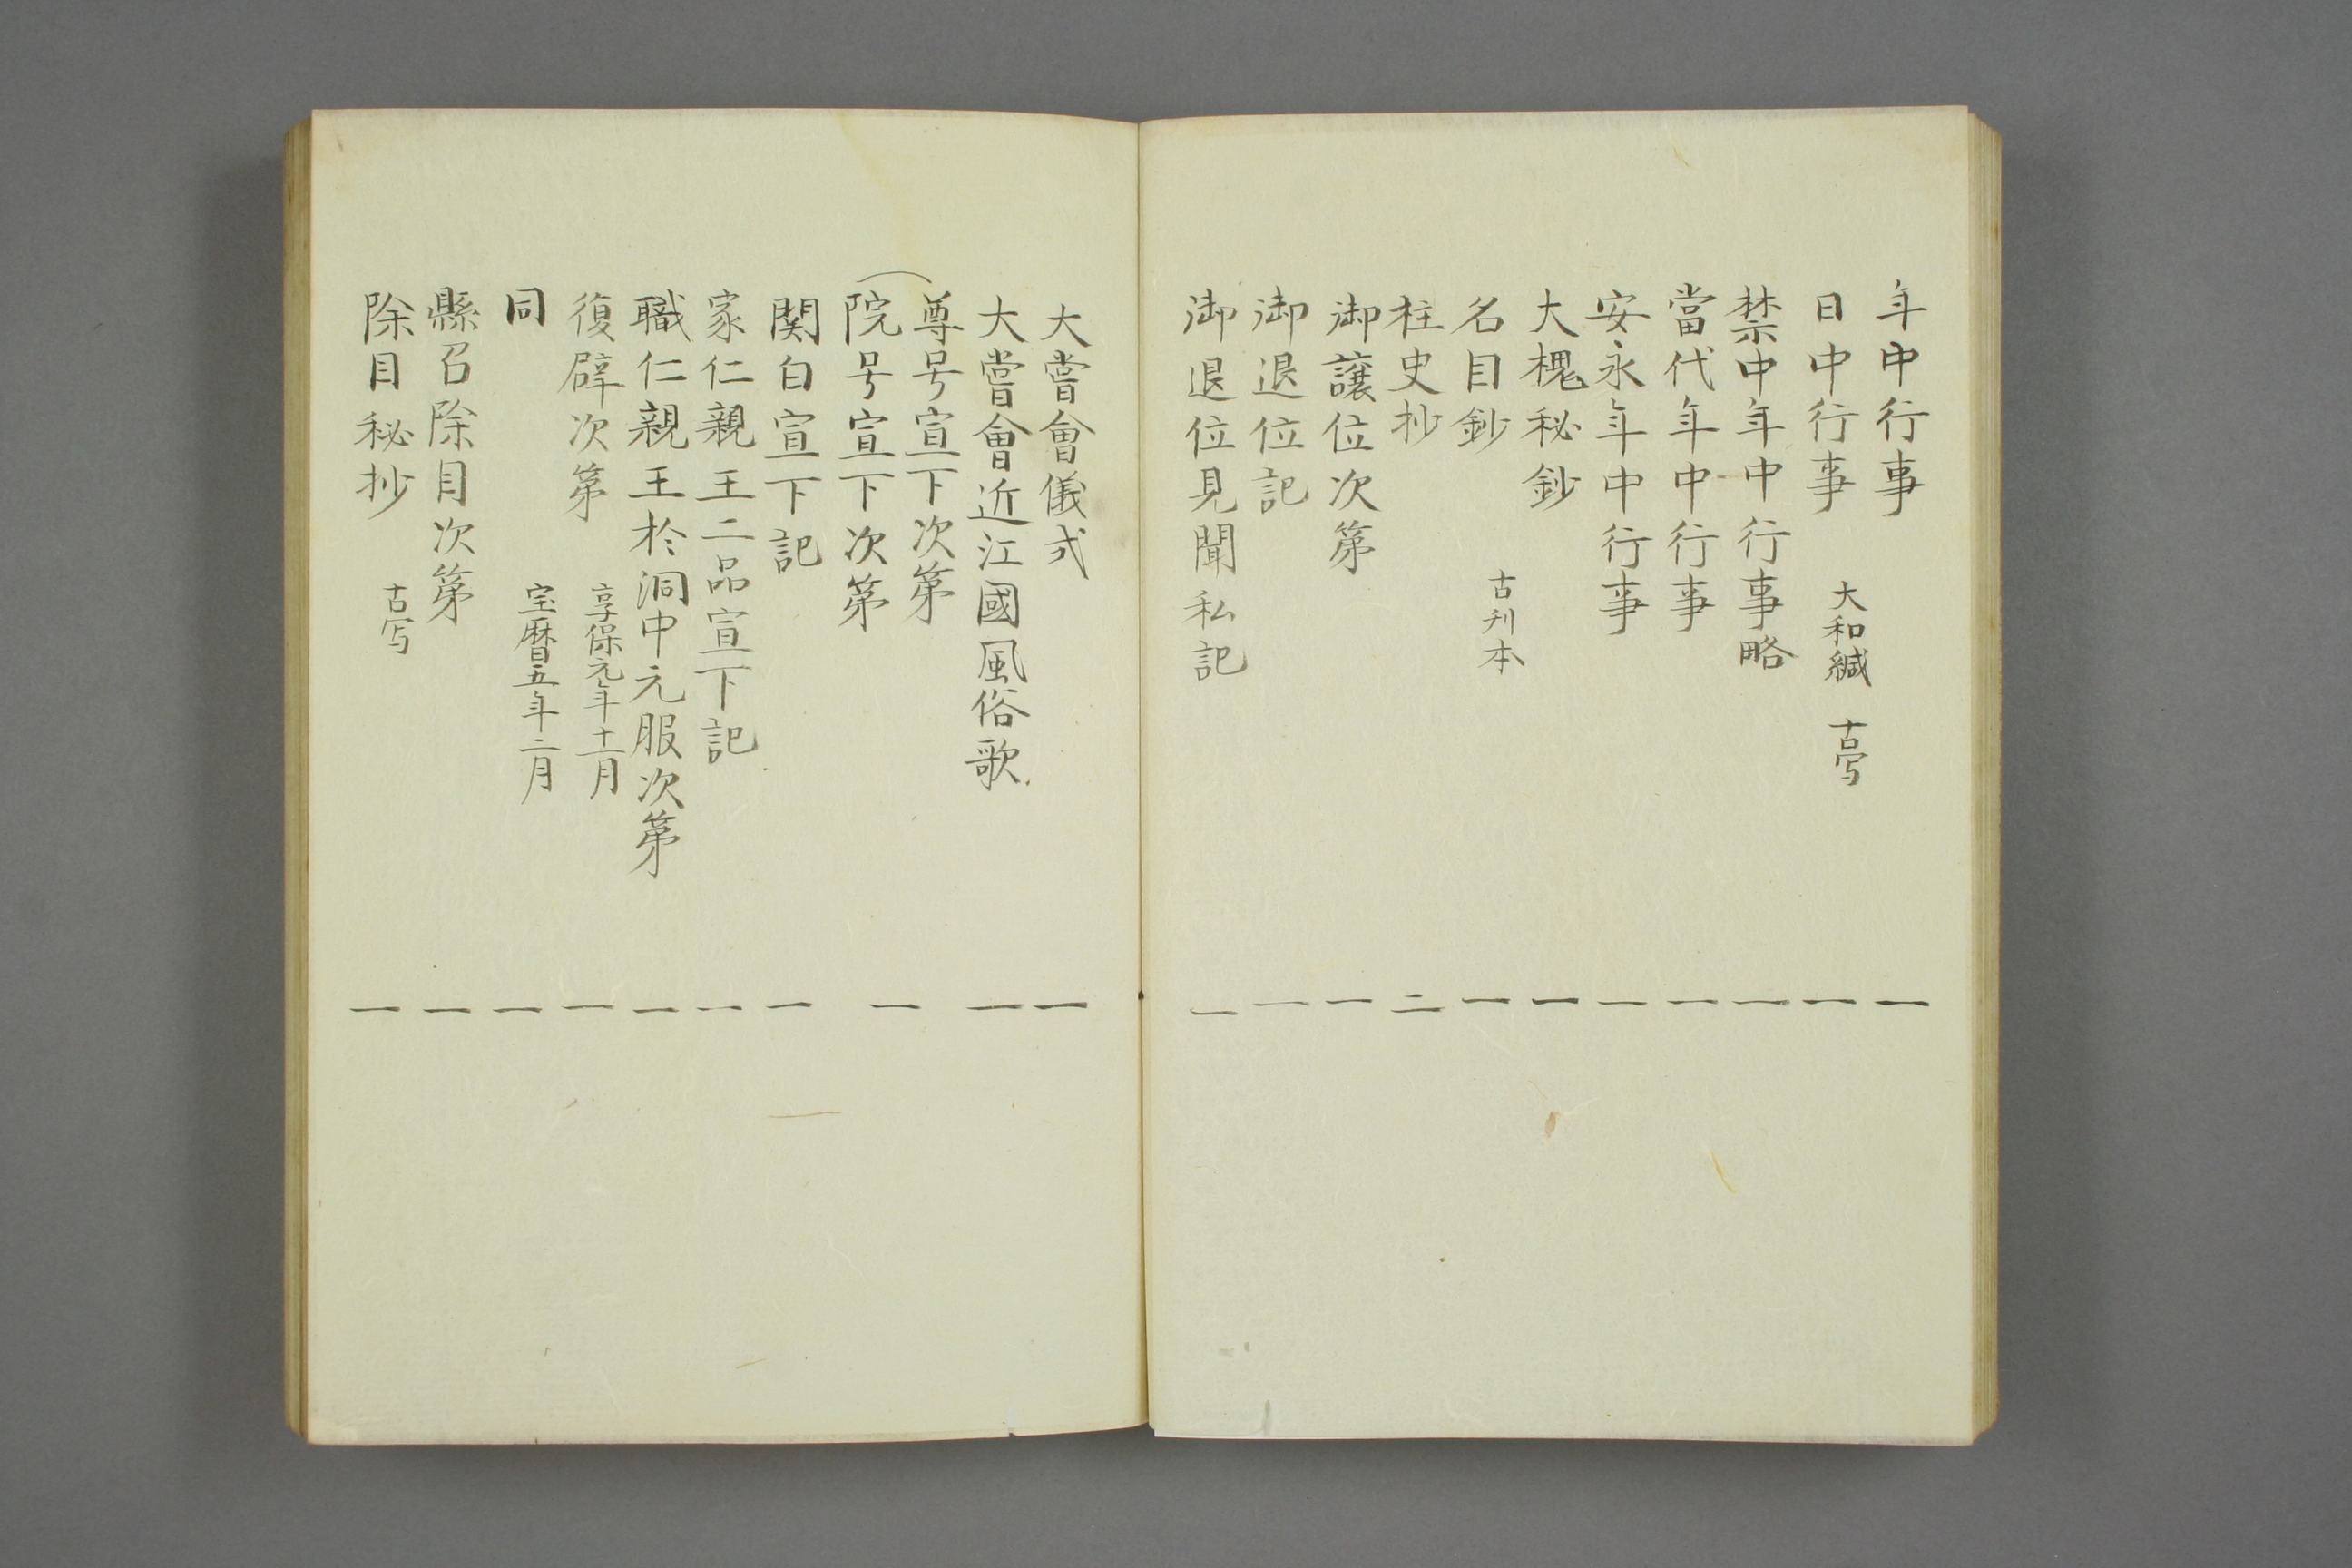 年中行事 一
日中行事 大和綴 古写 一
禁中年中行事略 一
當代年中行事 一
安永年中行事 一
大槐秘鈔 一
名目鈔 古刋本 一
柱史抄 二
御譲位次第 一
御退位記 一
御退位見聞私記 一
大嘗會儀式 一
大嘗會近江國風俗歌 一
尊号宣下次第
院号宣下次第 一
関白宣下記 一
家仁親王二品宣下記 一
職仁親王於洞中元服次第 一
復辟次第 享保元年十一月 一
同 宝暦五年二月 一
縣召除目次第 一
除目秘抄 古写 一